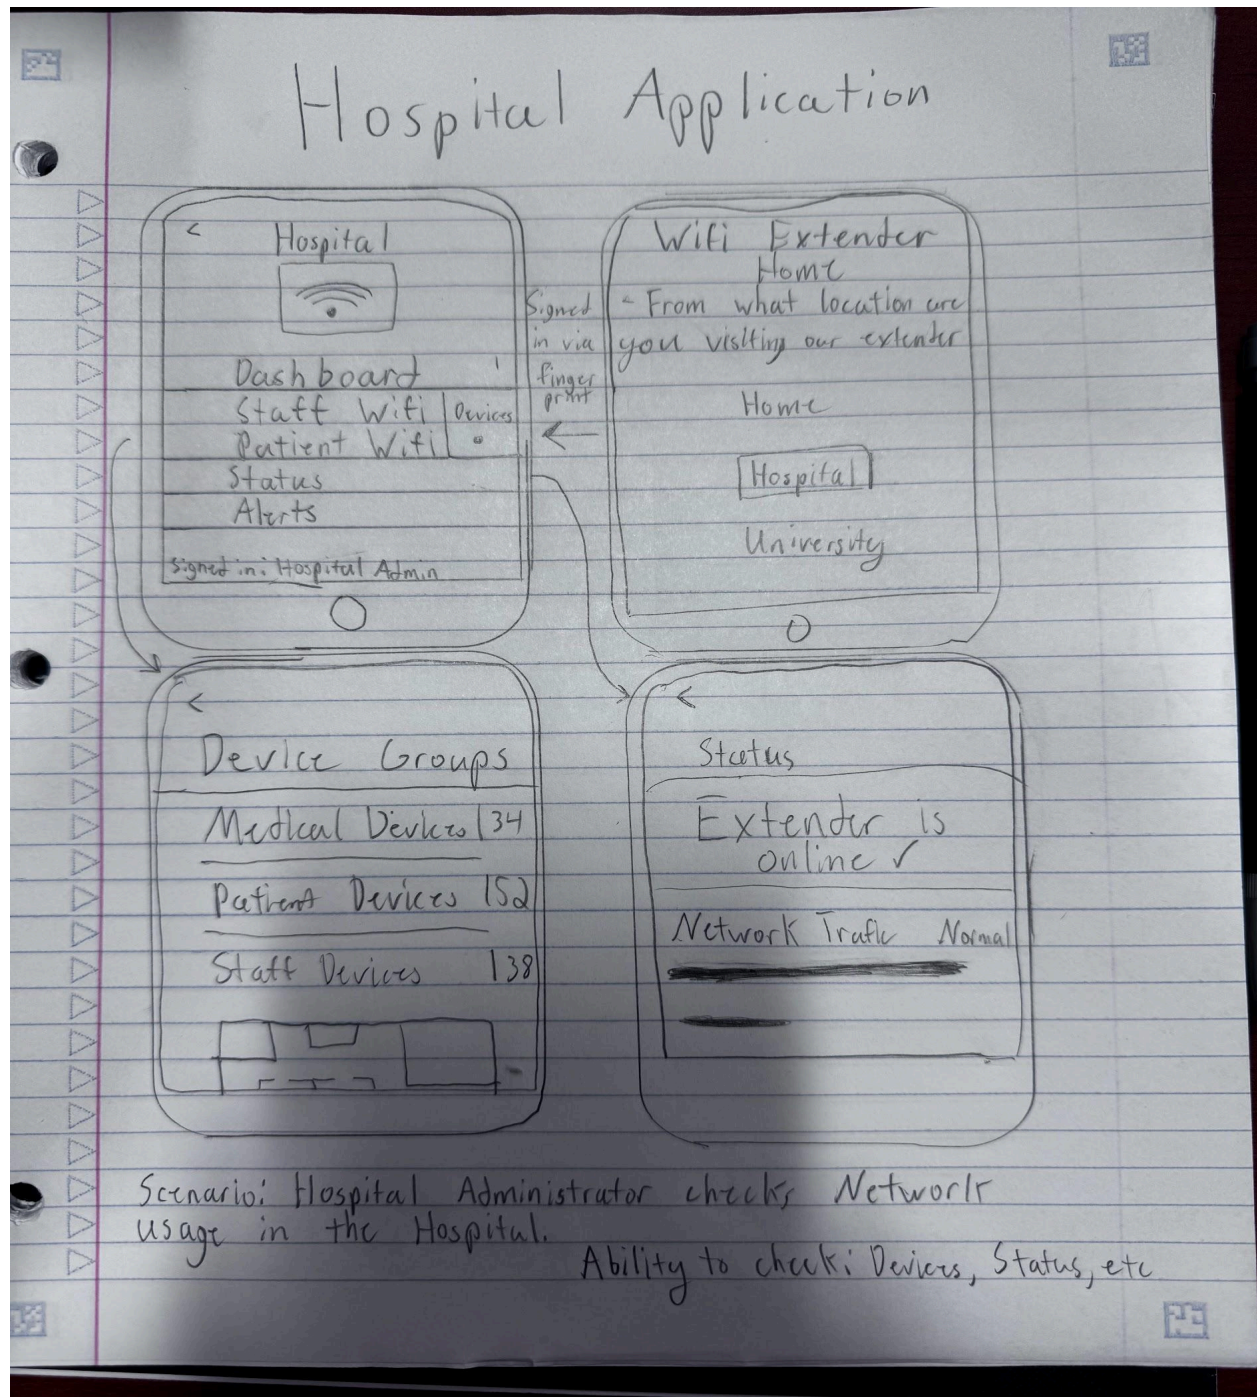 Hospital Application
<
Hospital
Dashboard
Staff Wifi
Patient Wifi
Devices
Status
Alerts
Signed in: Hospital Admin
Signed
in via
finger
print
Wifi Extender
Home
- From what location are
you visiting our extender
Home
Hospital
University
<
Device Groups
Medical Devices |34
Patient Devices |52
Staff Devices |38
<
Status
Extender is
online ✓
Network Trafic Normal
Scenario: Hospital Administrator checks Network
usage in the Hospital.
Ability to check: Devices, Status, etc